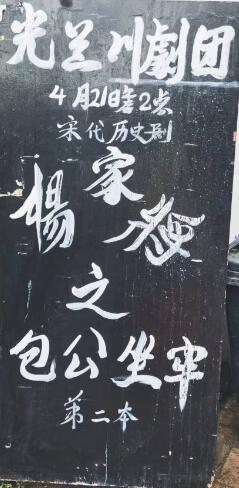 光兰川劇团
4月21日2点
宋代历史剧
楊家将
之
包公坐牢
第二本